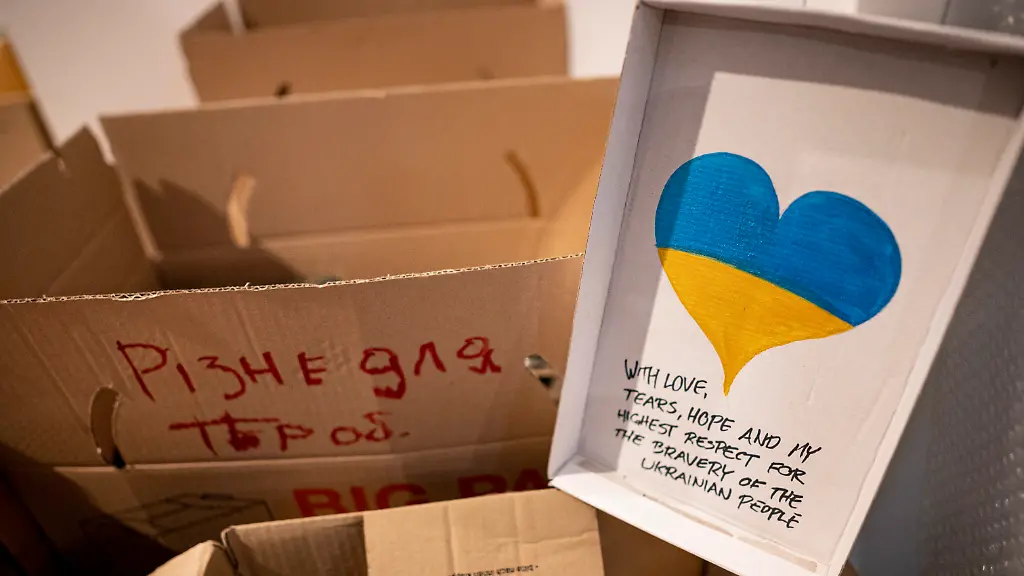 Різне для
тероб.
BIG PA
WITH LOVE,
TEARS, HOPE AND MY
HIGHEST RESPECT FOR
THE BRAVERY OF THE
UKRAINIAN PEOPLE